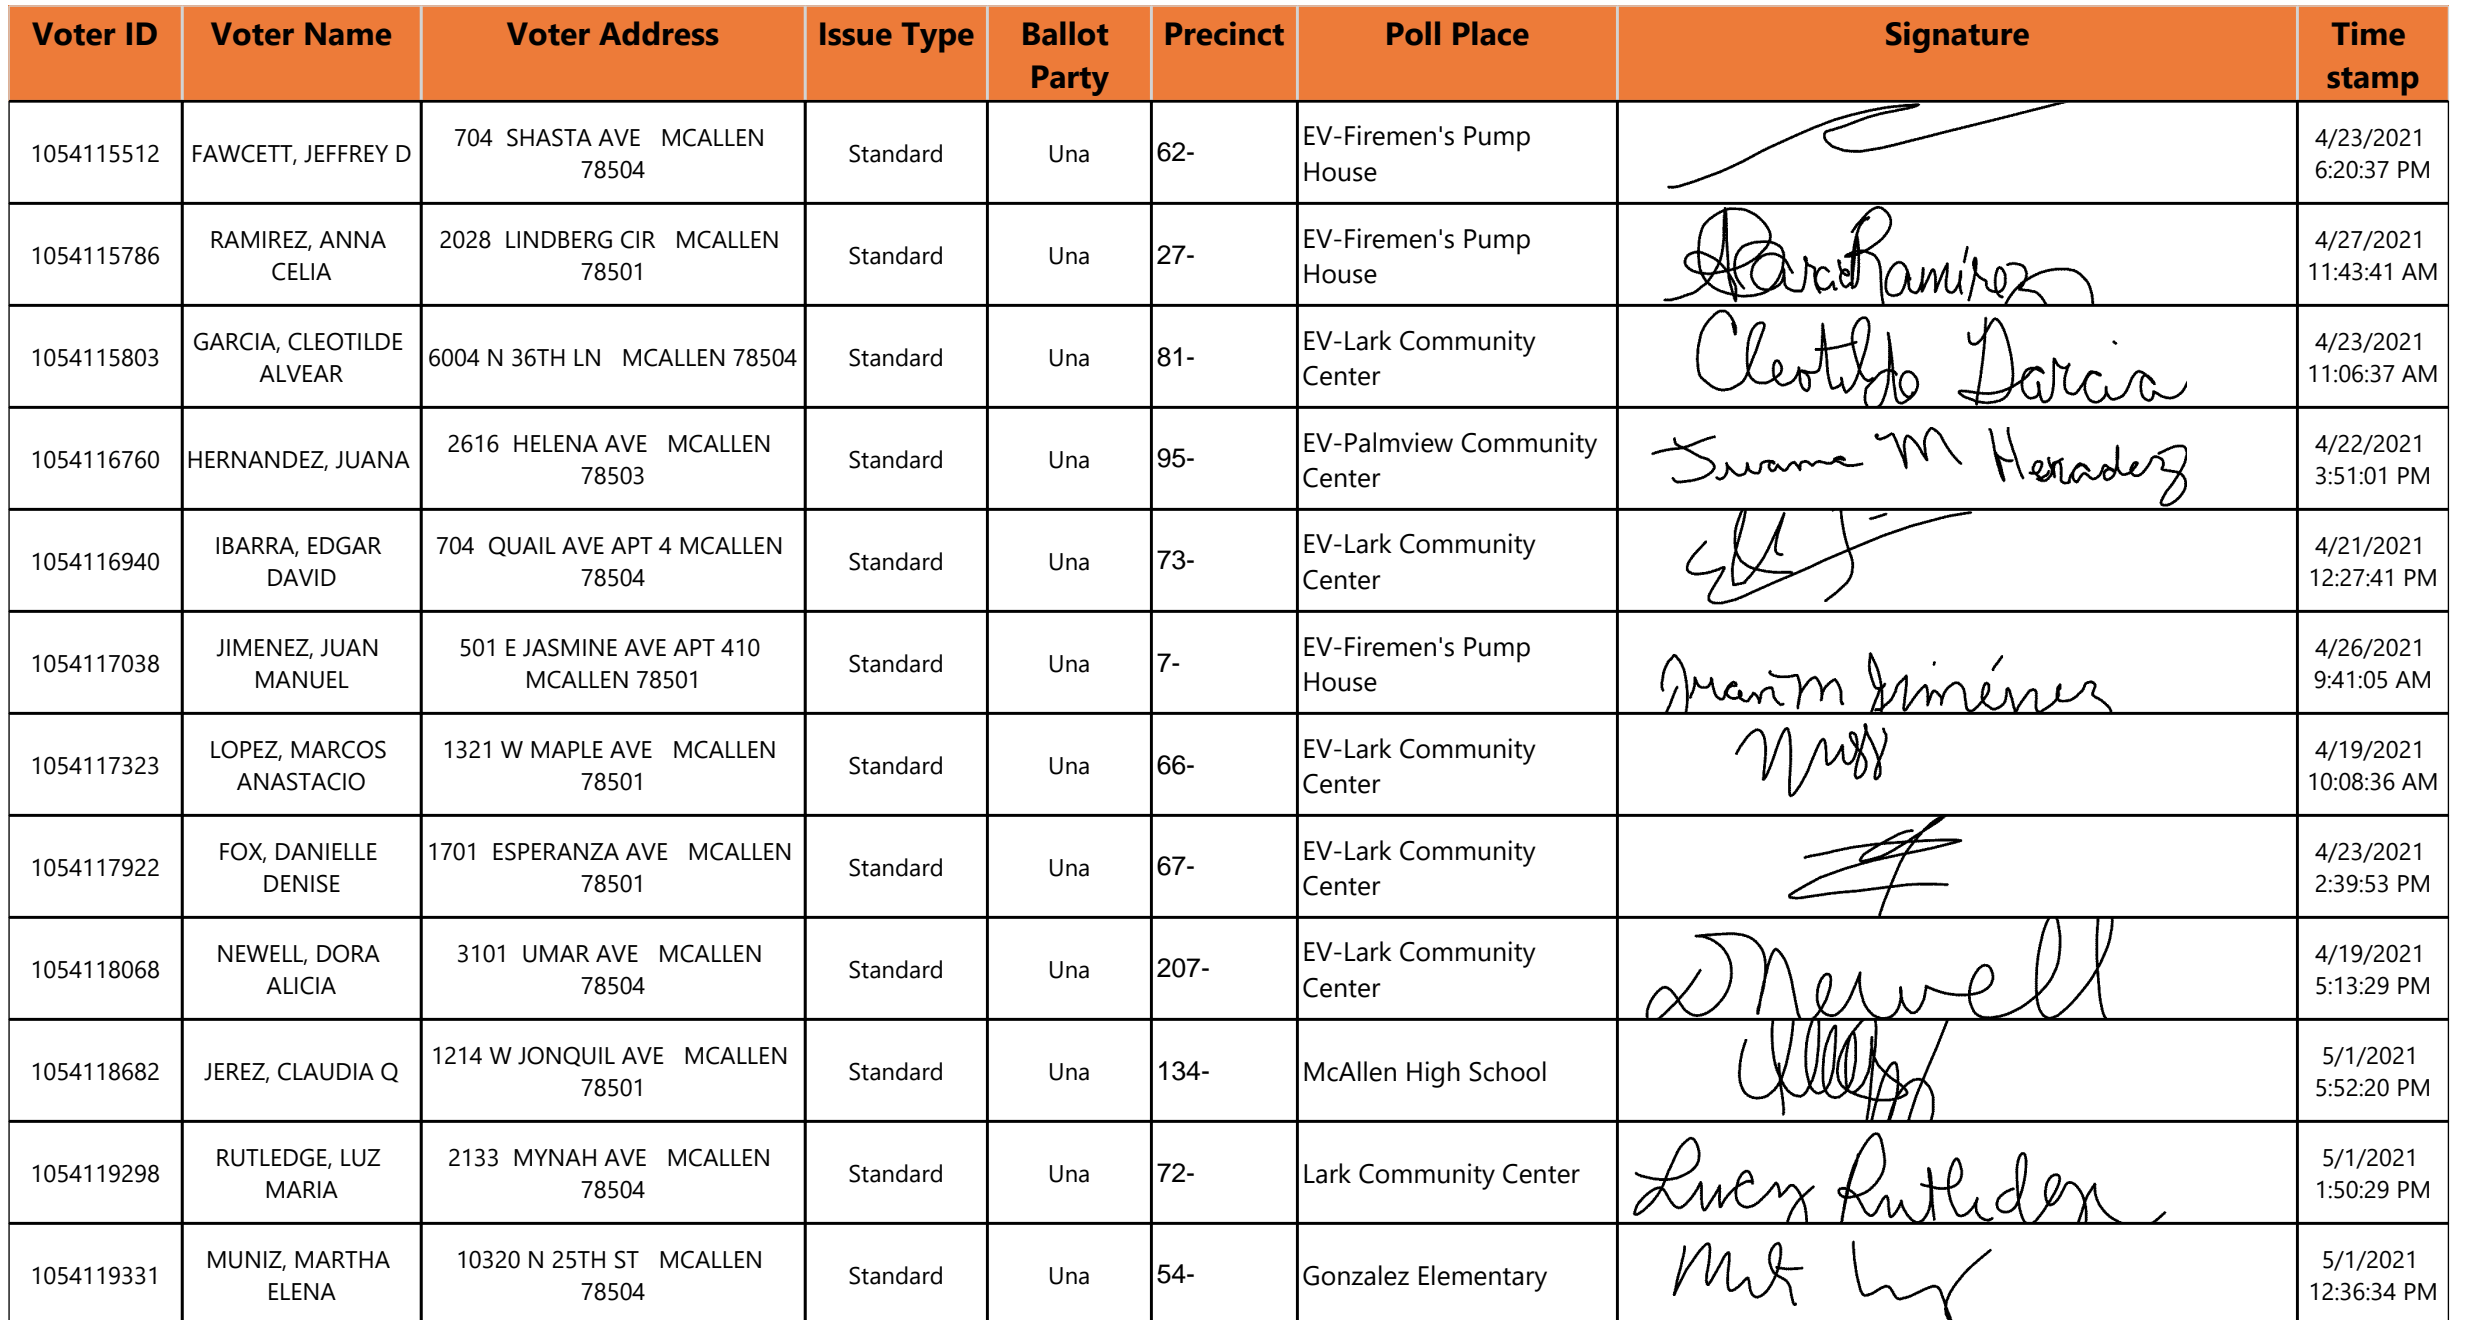 Voter ID Voter Name Voter Address Issue Type Ballot Party Precinct Poll Place Signature Time stamp
1054115512 FAWCETT, JEFFREY D 704 SHASTA AVE MCALLEN 78504 Standard Una 62- EV-Firemen's Pump House 4/23/2021 6:20:37 PM
1054115786 RAMIREZ, ANNA CELIA 2028 LINDBERG CIR MCALLEN 78501 Standard Una 27- EV-Firemen's Pump House Ramirez 4/27/2021 11:43:41 AM
1054115803 GARCIA, CLEOTILDE ALVEAR 6004 N 36TH LN MCALLEN 78504 Standard Una 81- EV-Lark Community Center Cleotilde Garcia 4/23/2021 11:06:37 AM
1054116760 HERNANDEZ, JUANA 2616 HELENA AVE MCALLEN 78503 Standard Una 95- EV-Palmview Community Center Juana M Henradez 4/22/2021 3:51:01 PM
1054116940 IBARRA, EDGAR DAVID 704 QUAIL AVE APT 4 MCALLEN 78504 Standard Una 73- EV-Lark Community Center 4/21/2021 12:27:41 PM
1054117038 JIMENEZ, JUAN MANUEL 501 E JASMINE AVE APT 410 MCALLEN 78501 Standard Una 7- EV-Firemen's Pump House Juan M Jiménez 4/26/2021 9:41:05 AM
1054117323 LOPEZ, MARCOS ANASTACIO 1321 W MAPLE AVE MCALLEN 78501 Standard Una 66- EV-Lark Community Center 4/19/2021 10:08:36 AM
1054117922 FOX, DANIELLE DENISE 1701 ESPERANZA AVE MCALLEN 78501 Standard Una 67- EV-Lark Community Center 4/23/2021 2:39:53 PM
1054118068 NEWELL, DORA ALICIA 3101 UMAR AVE MCALLEN 78504 Standard Una 207- EV-Lark Community Center D Newell 4/19/2021 5:13:29 PM
1054118682 JEREZ, CLAUDIA Q 1214 W JONQUIL AVE MCALLEN 78501 Standard Una 134- McAllen High School 5/1/2021 5:52:20 PM
1054119298 RUTLEDGE, LUZ MARIA 2133 MYNAH AVE MCALLEN 78504 Standard Una 72- Lark Community Center Lucy 5/1/2021 1:50:29 PM
1054119331 MUNIZ, MARTHA ELENA 10320 N 25TH ST MCALLEN 78504 Standard Una 54- Gonzalez Elementary 5/1/2021 12:36:34 PM